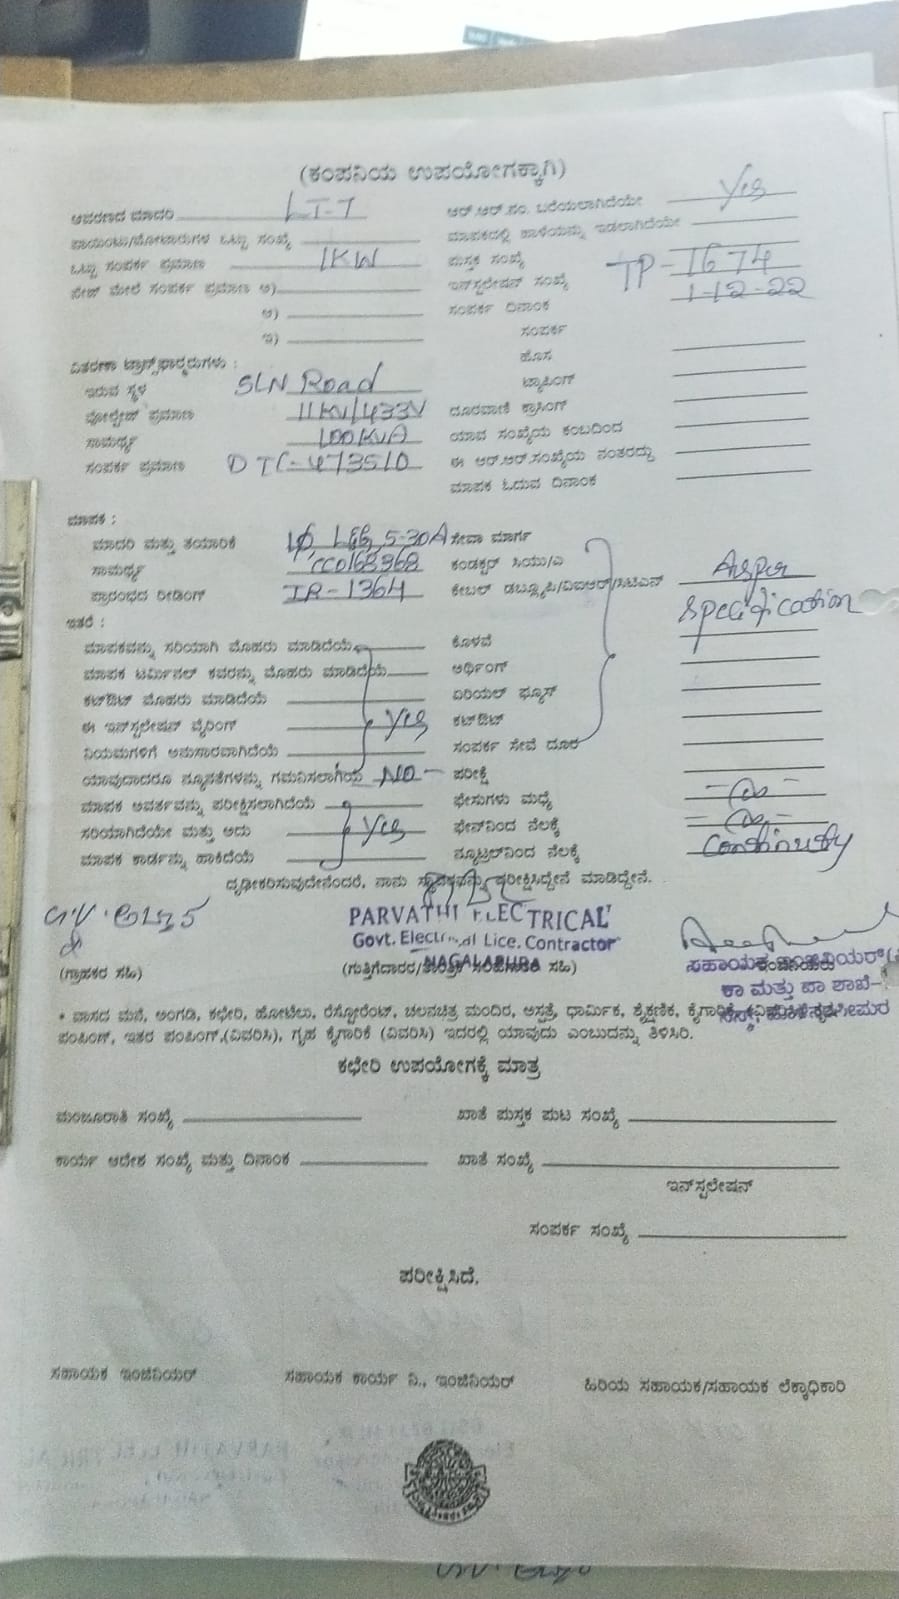 (ಕಂಪನಿಯ ಉಪಯೋಗಕ್ಕಾಗಿ)
ಆವರಣದ ಮಾದರಿ LT-7
ಆರ್.ಆರ್.ನಂ. ಬರೆಯಲಾಗಿದೆಯೇ Yes
ಪಾಯಿಂಟು/ಮೋಟಾರುಗಳ ಒಟ್ಟು ಸಂಖ್ಯೆ
ಮಾಪಕದಲ್ಲಿ ಹಾಳೆಯನ್ನು ಇಡಲಾಗಿದೆಯೇ
ಒಟ್ಟು ಸಂಪರ್ಕ ಪ್ರಮಾಣ 1KW
ಪುಸ್ತಕ ಸಂಖ್ಯೆ
ಮೇಲೆ ಸಂಪರ್ಕ ಪ್ರಮಾಣ ಅ)
ಇನ್‌ಸ್ಟಲೇಷನ್ ಸಂಖ್ಯೆ TP-1674
ಆ)
ಸಂಪರ್ಕ ದಿನಾಂಕ 1-12-22
ಇ)
ಸಂಪರ್ಕ
ಹೊಸ
ವಿತರಣಾ ಟ್ರಾನ್ಸ್‌ಫಾರ್ಮರುಗಳು :
ಟ್ಯಾಪಿಂಗ್
ಇರುವ ಸ್ಥಳ SLN Road
ದೂರವಾಣಿ ಕ್ರಾಸಿಂಗ್
ವೋಲ್ಟೇಜ್ ಪ್ರಮಾಣ 11KV/433V
ಯಾವ ಸಂಖ್ಯೆಯ ಕಂಬದಿಂದ
ಸಾಮರ್ಥ್ಯ 100KVA
ಈ ಆರ್.ಆರ್.ಸಂಖ್ಯೆಯ ನಂತರದ್ದು
ಸಂಪರ್ಕ ಪ್ರಮಾಣ DTC-473510
ಮಾಪಕ ಓದುವ ದಿನಾಂಕ
ಮಾಪಕ :
ಮಾದರಿ ಮತ್ತು ತಯಾರಿಕೆ 1Φ L&G, 5-30A
ಸೇವಾ ಮಾರ್ಗ
ಸಾಮರ್ಥ್ಯ CC0168968
ಕಂಡಕ್ಟರ್ ಸಿಯು/ಎ
ಪ್ರಾರಂಭದ ರೀಡಿಂಗ್ IR-1364
ಕೇಬಲ್ ಡಬ್ಲ್ಯೂಪಿ/ವಿಐಆರ್/ಸಿಟಿಎಸ್
Asper
specification
ಇತರೆ :
ಮಾಪಕವನ್ನು ಸರಿಯಾಗಿ ಮೊಹರು ಮಾಡಿದೆಯೆ
ಕೊಳವೆ
ಮಾಪಕ ಟರ್ಮಿನಲ್ ಕವರನ್ನು ಮೊಹರು ಮಾಡಿದೆಯೆ
ಅರ್ಥಿಂಗ್
ಕಟ್‌ಔಟ್ ಮೊಹರು ಮಾಡಿದೆಯೆ
ಏರಿಯಲ್ ಫ್ಯೂಸ್
ಈ ಇನ್‌ಸ್ಟಲೇಷನ್ ವೈರಿಂಗ್ Yes
ಕಟ್‌ಔಟ್
ನಿಯಮಗಳಿಗೆ ಅನುಸಾರವಾಗಿದೆಯೆ
ಸಂಪರ್ಕ ಸೇವೆ ದೂರ
ಯಾವುದಾದರೂ ನ್ಯೂನತೆಗಳನ್ನು ಗಮನಿಸಲಾಗಿಯೆ NO -
ಪರೀಕ್ಷೆ
ಮಾಪಕ ಅವರ್ತವನ್ನು ಪರೀಕ್ಷಿಸಲಾಗಿದೆಯೆ
ಫೇಸುಗಳು ಮಧ್ಯೆ
ಸರಿಯಾಗಿದೆಯೇ ಮತ್ತು ಅದು Yes
ಫೇಸ್‌ನಿಂದ ನೆಲಕ್ಕೆ
ಮಾಪಕ ಕಾರ್ಡನ್ನು ಹಾಕಿದೆಯೆ
ನ್ಯೂಟ್ರಲ್‌ನಿಂದ ನೆಲಕ್ಕೆ Continuity
ದೃಢೀಕರಿಸುವುದೇನೆಂದರೆ, ನಾನು ಸ್ಥಾವರವನ್ನು ಪರೀಕ್ಷಿಸಿದ್ದೇನೆ ಮಾಡಿದ್ದೇನೆ.
PARVATHI ELECTRICAL
Govt. Electrical Lice. Contractor
NAGALAPURA
(ಗ್ರಾಹಕರ ಸಹಿ)
ಸಹಾಯಕ ಇಂಜಿನಿಯರ್
ಕಾ ಮತ್ತು ಪಾ ಶಾಖೆ-
* ವಾಸದ ಮನೆ, ಅಂಗಡಿ, ಕಛೇರಿ, ಹೋಟೆಲು, ರೆಸ್ಟೋರೆಂಟ್, ಚಲನಚಿತ್ರ ಮಂದಿರ, ಆಸ್ಪತ್ರೆ, ಧಾರ್ಮಿಕ, ಶೈಕ್ಷಣಿಕ, ಕೈಗಾರಿಕೆ,
ಪಂಪಿಂಗ್, ಇತರ ಪಂಪಿಂಗ್,(ವಿವರಿಸಿ), ಗೃಹ ಕೈಗಾರಿಕೆ (ವಿವರಿಸಿ) ಇದರಲ್ಲಿ ಯಾವುದು ಎಂಬುದನ್ನು ತಿಳಿಸಿರಿ.
ಕಛೇರಿ ಉಪಯೋಗಕ್ಕೆ ಮಾತ್ರ
ಮಂಜೂರಾತಿ ಸಂಖ್ಯೆ
ಖಾತೆ ಪುಸ್ತಕ ಪುಟ ಸಂಖ್ಯೆ
ಕಾರ್ಯ ಆದೇಶ ಸಂಖ್ಯೆ ಮತ್ತು ದಿನಾಂಕ
ಖಾತೆ ಸಂಖ್ಯೆ
ಇನ್‌ಸ್ಟಲೇಷನ್
ಸಂಪರ್ಕ ಸಂಖ್ಯೆ
ಪರೀಕ್ಷಿಸಿದೆ.
ಸಹಾಯಕ ಇಂಜಿನಿಯರ್
ಸಹಾಯಕ ಕಾರ್ಯ ನಿ., ಇಂಜಿನಿಯರ್
ಹಿರಿಯ ಸಹಾಯಕ/ಸಹಾಯಕ ಲೆಕ್ಕಾಧಿಕಾರಿ